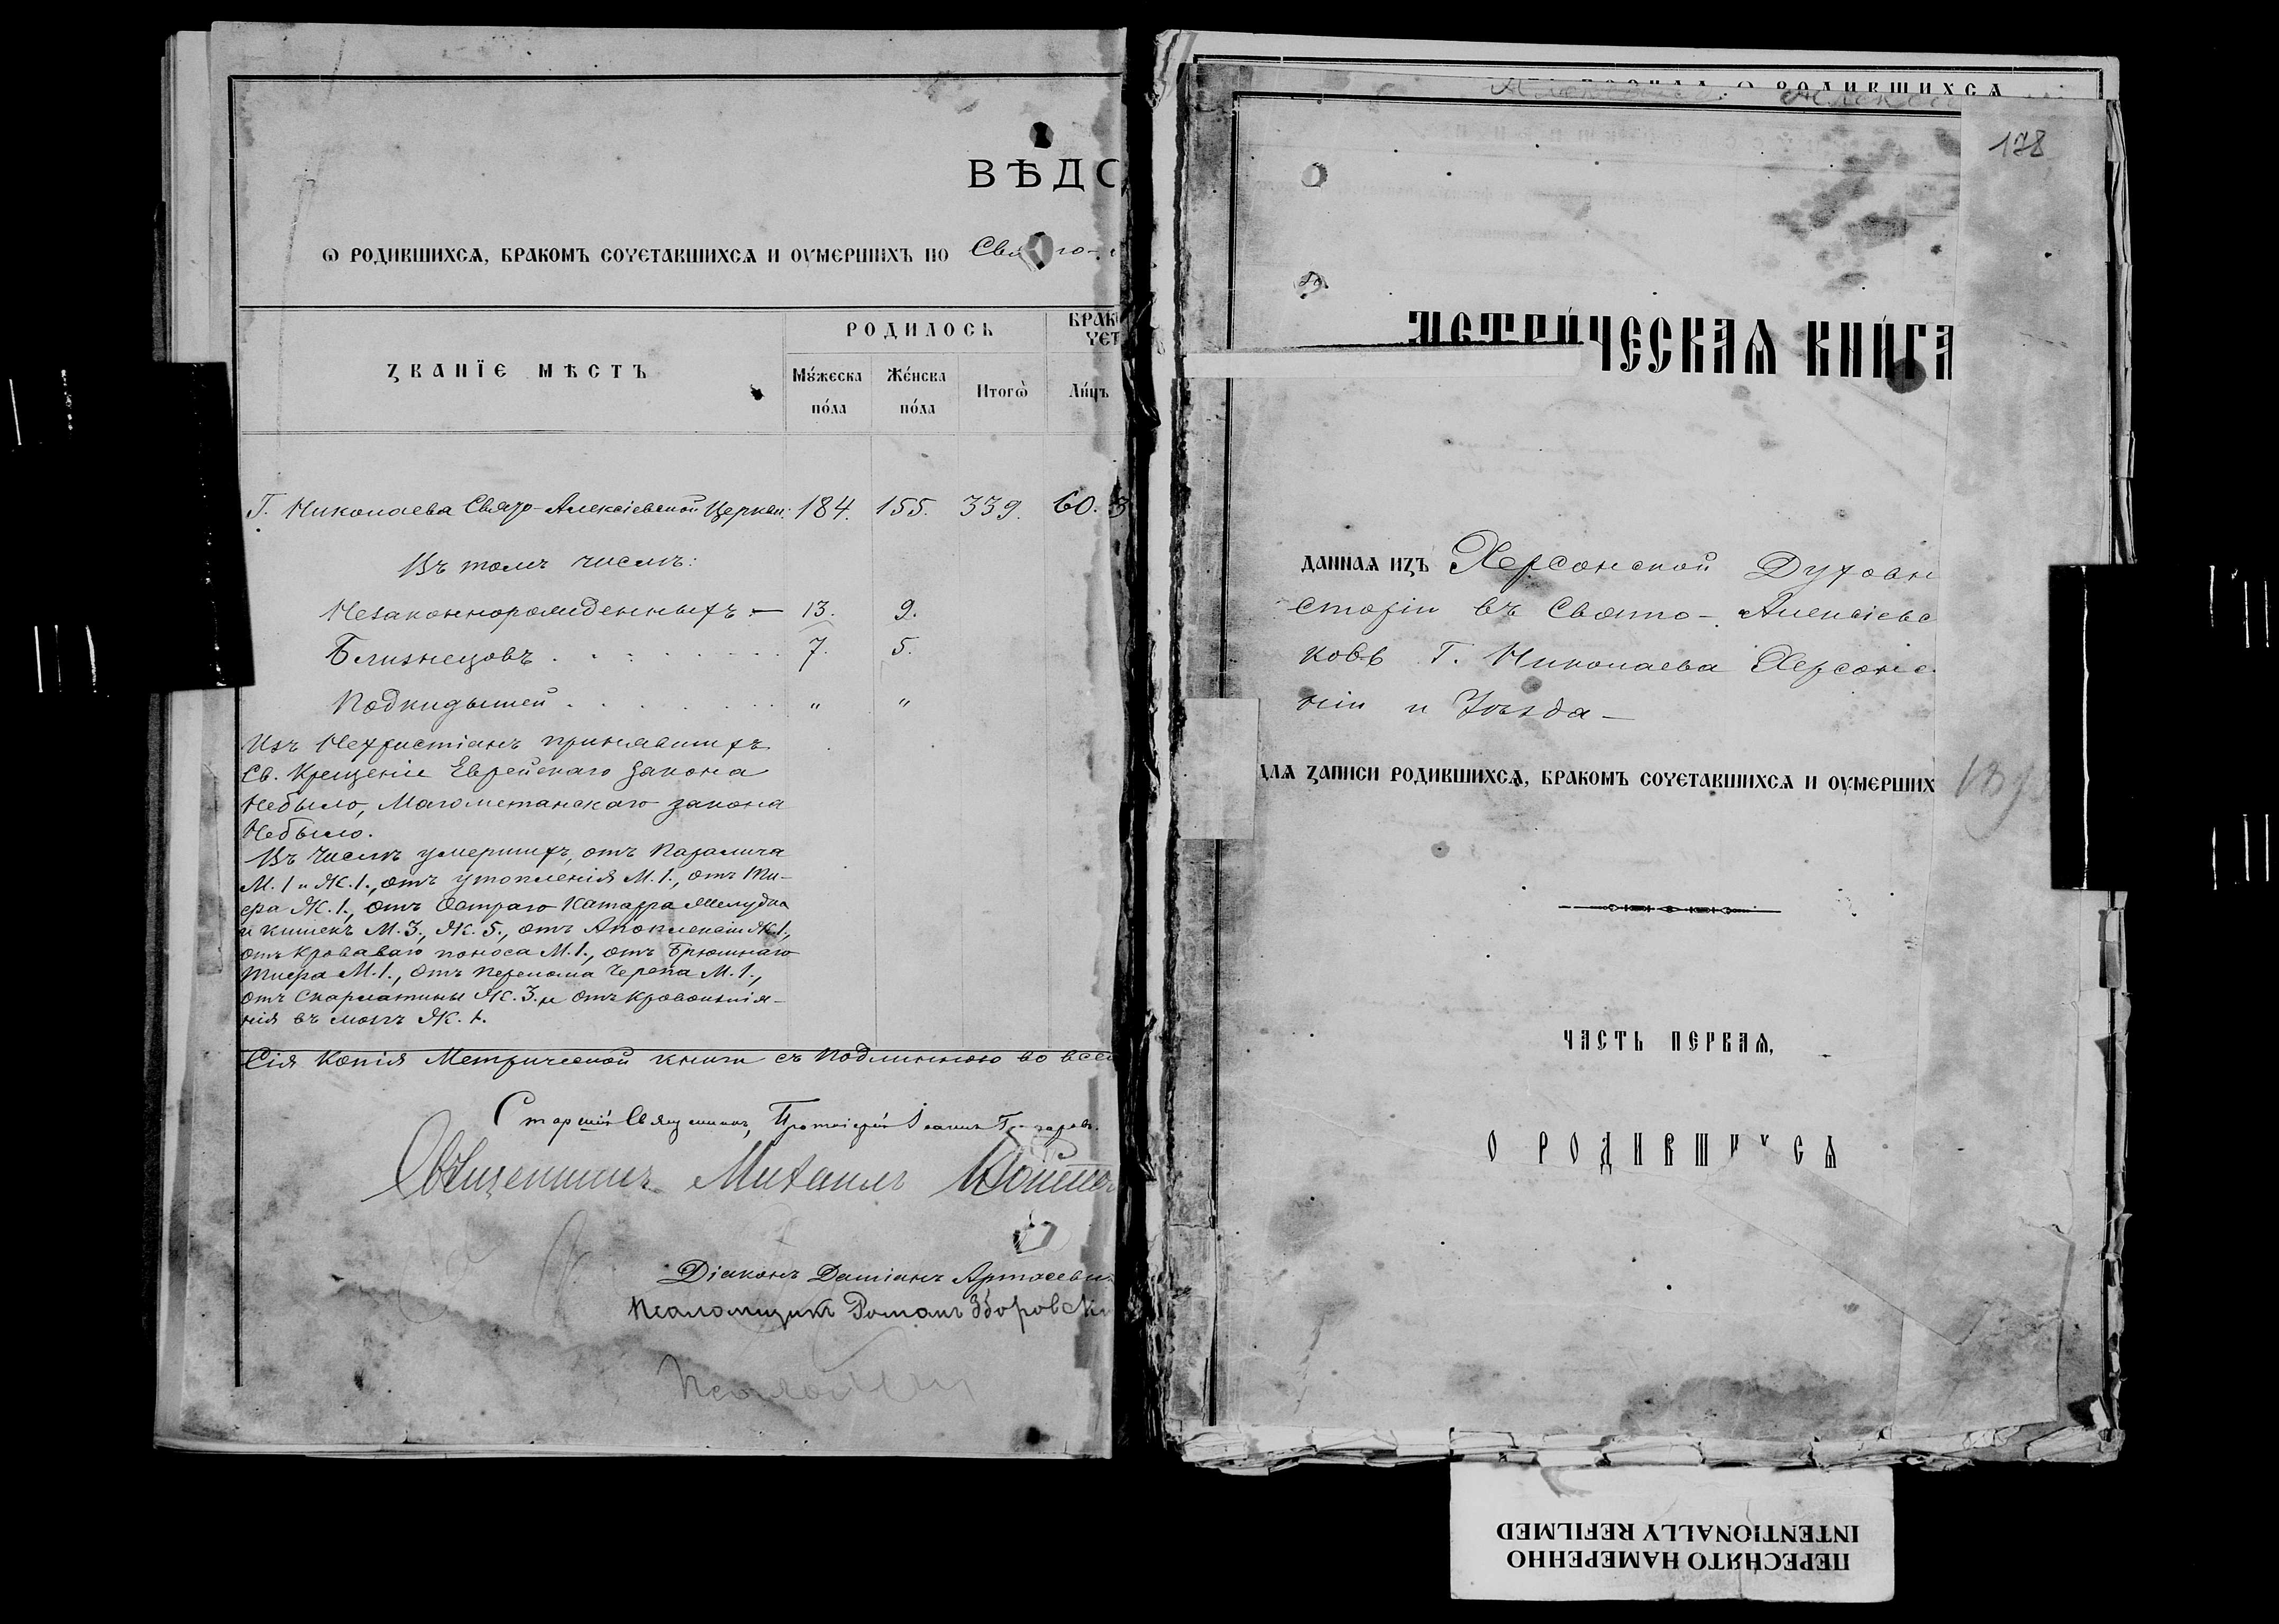 ВѢДО
Ѡ РОДИВШИХСѦ, БРАКОМЪ СОЧЕТАВШИХСѦ И ОУМЕРШИХЪ ПО
ЗВАНІЕ МѢСТЪ
РОДИЛОСЬ
БРАК
ЧЕТ
Мꙋжеска пола
Женска пола
Итогѡ
Лицъ
Г. Николаева Свято-Алексіевской Церкви: 184. 155. 339. 60.
Въ томъ числѣ:
Незаконнорожденныхъ — 13. 9.
Близнецовъ . . . . . . . 7. 5.
Подкидышей . . . . . . . " "
Изъ Нехристіанъ принявшихъ
Св. Крещеніе Еврейскаго Закона
Небыло, Магометанскаго закона
Небыло.
Въ числѣ умершихъ, отъ Паралича
М. 1 и Ж. 1., отъ утопленія М. 1., отъ Ти-
фа Ж. 1., отъ Остраго Катарра Желудка
и кишекъ М. 3., Ж. 5., отъ Апоплексіи Ж. 1.,
отъ Кроваваго поноса М. 1., отъ Брюшнаго
Тифа М. 1., отъ перелома Черепа М. 1.,
отъ Скарлатины Ж. 3. и отъ кровоизлія-
нія въ мозгъ Ж. 1.
Сія Копія Метрической книги съ Подлинною во всем
Старшій Священникъ, Протоіерей Іоаннъ
Священникъ Михаилъ
Діаконъ Даміанъ Артасеви
Псаломщикъ Романъ Зборовскі
О РОДИВШИХСѦ
178
МЕТРИЧЕСКАѦ КНИГА
ДАННАѦ ИЗЪ Херсонской Духовн
сторіи въ Свято-Алексіевс
ковь Г. Николаева Херсонс
ніи и Уѣзда —
ДЛѦ ЗАПИСИ РОДИВШИХСѦ, БРАКОМЪ СОЧЕТАВШИХСѦ И ОУМЕРШИХ
ЧАСТЬ ПЕРВАѦ,
О РОДИВШИХСѦ
ПЕРЕСНЯТО НАМЕРЕННО
INTENTIONALLY REFILMED